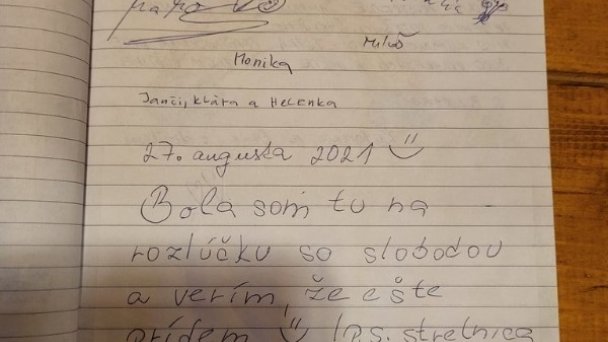 Miloš
Monika
Janči, Klára a Helenka
27. augusta 2021
Bola som tu na
rozlúčku so slobodou
a verím, že ešte
prídem (P.S. strelnica